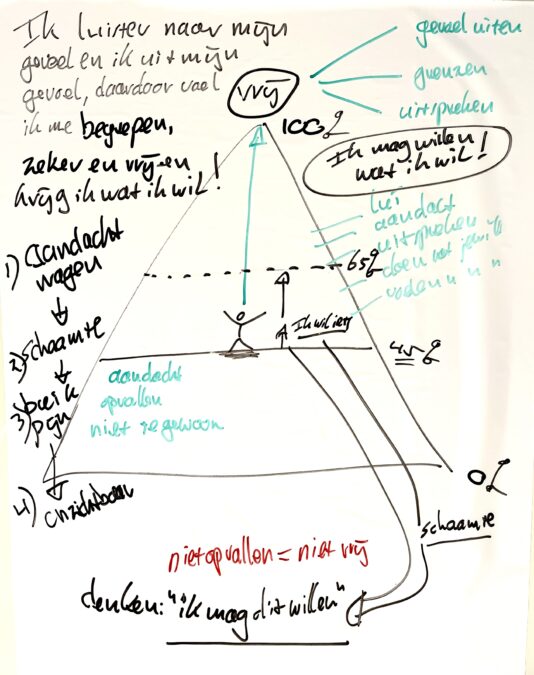 Ik luister naar mijn
gevoel en ik uit mijn
gevoel, daardoor voel
ik me begrepen,
zeker en vrij en
krijg ik wat ik wil!
vrij
gevoel uiten
grenzen
uitspreken
100%
Ik mag willen
wat ik wil!
lui
aandacht
uitspreken
65%
doen wat
1) Aandacht
vragen
2) schaamte
3) buik
pijn
4) onzichtbaar
Ik wil iets
45%
aandacht
opvallen
niet te gewoon
0%
schaamte
niet opvallen = niet vrij
denken: "ik mag dit willen"